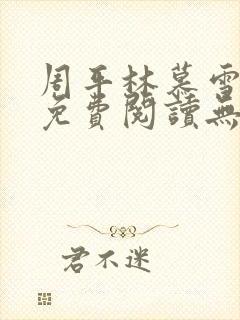 周平林慕雪
免費閱讀無
君不迷